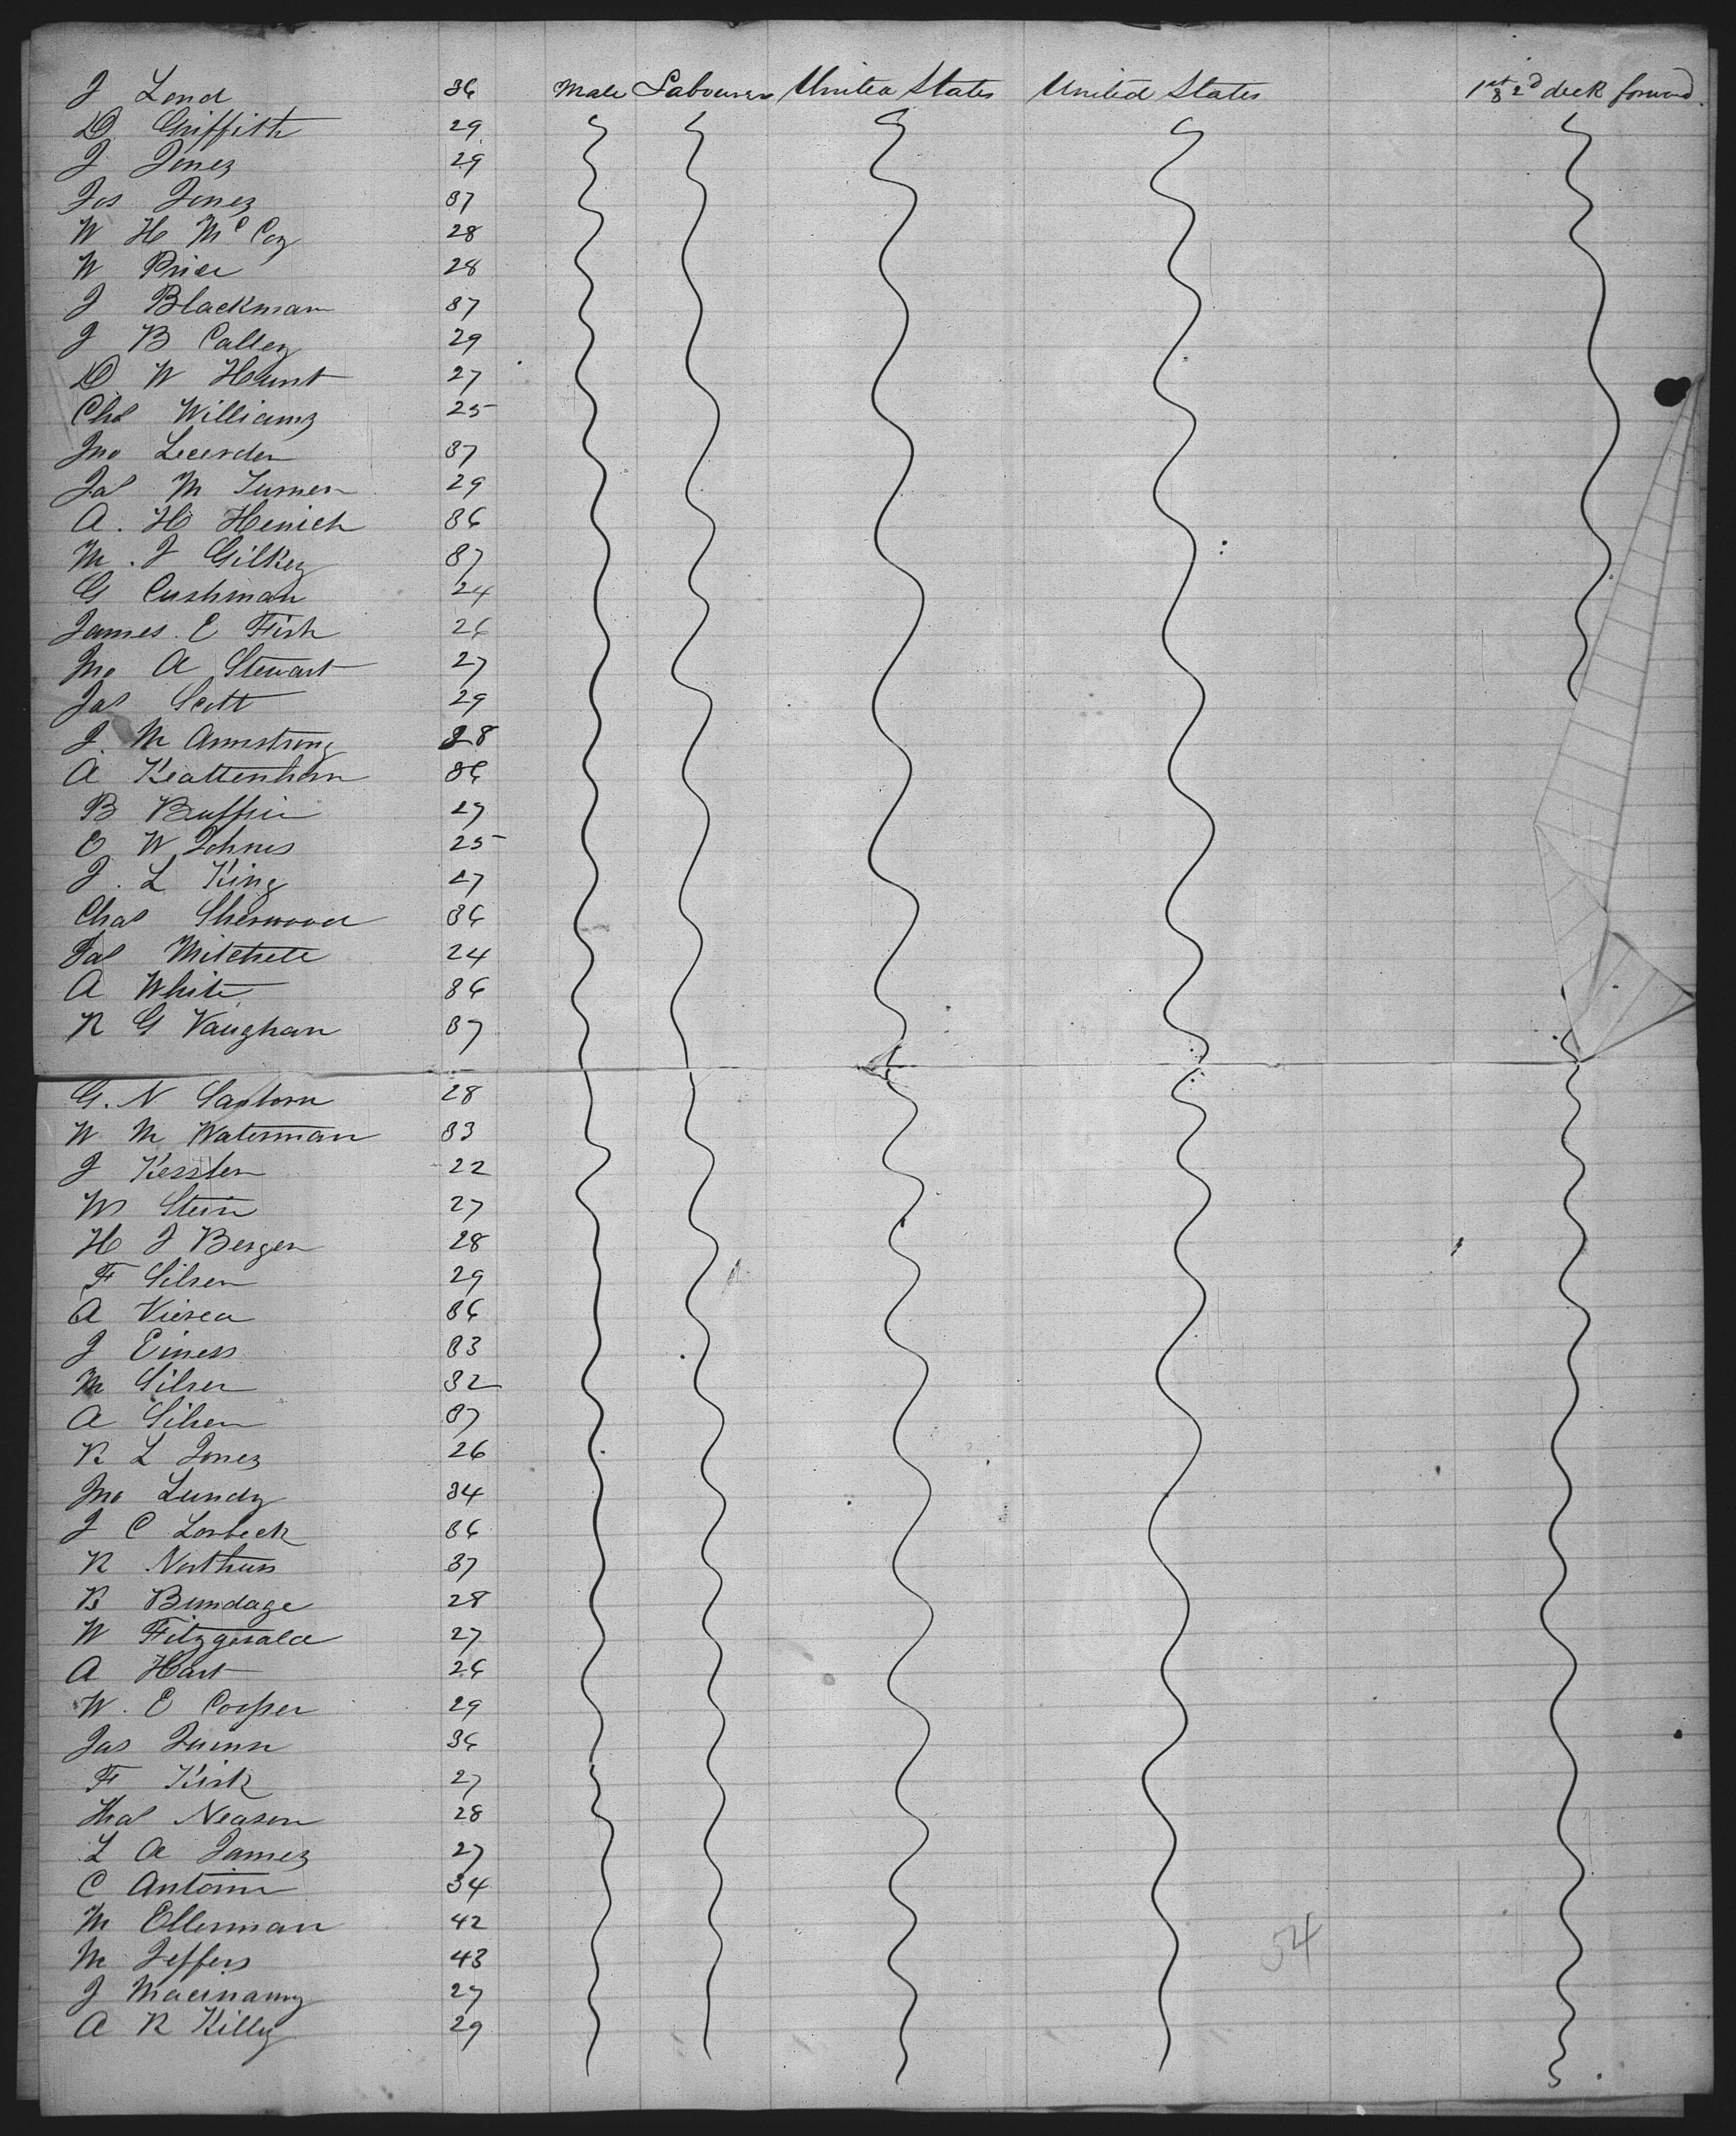 J Lond 36 Male Labourer United States United States 1st & 2d deck forward.
D Griffith 29
J Jones 29
Jos Jones 37
W H McCoy 28
W Price 28
J Blackman 37
J B Calley 29
D W Hunt 27
Chs Williams 25
Jno 37
Jas M Turner 29
A. H Henich 36
M. J Gilkey 37
G Cushman 24
James. E Fish 26
Jno A Stewart 27
Jas Scott 29
J. M Armstrong 28
A 36
B Buffin 27
E W Johns 25
J. L King 27
Chas Sherwood 36
Jas Mitchell 24
A White 36
R G Vaughan 37
G. N Sanborn 28
W M Waterman 33
J Kessler 22
M Stein 27
H J Berger 28
F Silsen 29
A Vierea 36
J Einess 33
M Silsen 32
A Silsen 37
R L Jones 26
Jno Lundy 34
J C Lorbeck 36
R Northus 37
B Bundage 28
W Fitzgerald 27
A Hart 26
W. E Cooper 29
Jas Quinn 36
F Kirk 27
Thos Neason 28
L A James 27
C Antoine 34
M Ellerman 42
M Jeffers 43
54
J 27
A R Killy 29